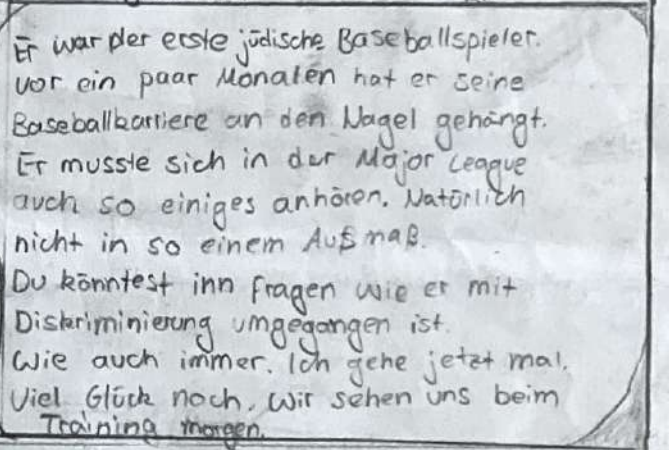 Er war der erste jüdische Baseballspieler.
vor ein paar Monaten hat er seine
Baseballkarriere an den Nagel gehängt.
Er musste sich in der Major League
auch so einiges anhören. Natürlich
nicht in so einem Außmaß.
Du könntest inn fragen wie er mit
Diskriminierung umgegangen ist.
Wie auch immer. Ich gehe jetzt mal.
Viel Glück noch. Wir sehen uns beim
Training morgen.